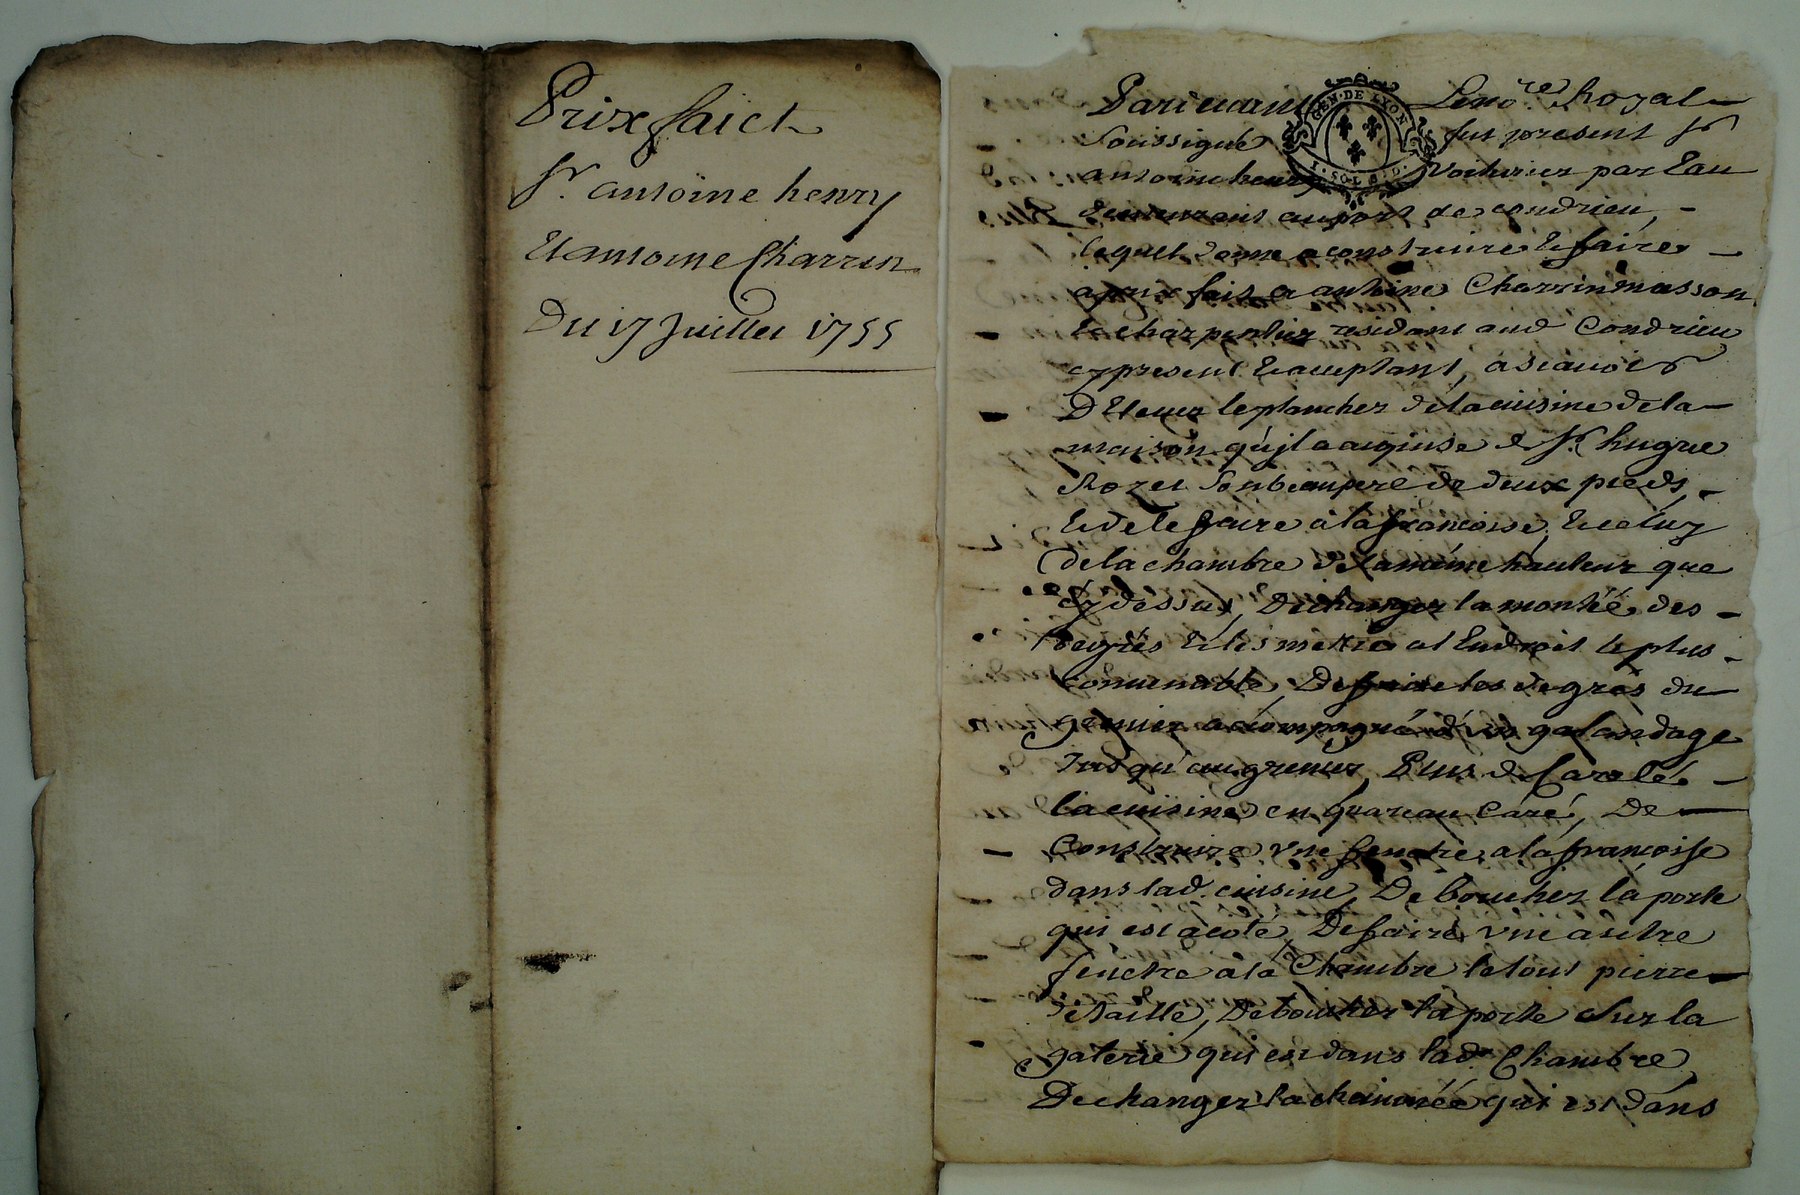 Prix faict
Sr. antoine henry
Et antoine Charrin
Du 17 Juillet 1755
Pardevant Le no.re Royal
GEN. DE LYON
1. SOL 8. D.
Soussigné fut present Sr
antoine henry Voiturier par Eau
demeurant au port de condrieu,
lequel donne a construire et faire
a prix fait a antoine Charrin masson
et charpentier residant aud Condrieu
cy present Et acceptant, a scavoir
D'Elever le plancher de la cuisine de la
maison qu'jl a acquise de Sr. hugue
Rozet Son beaupere de deux pieds,
Et de le faire à la francoise, Et celuy
de la chambre de la même hauteur que
cy dessus, De changer la montéé des
degrés Et les mettre a l'Endroit le plus
convenable, De faire les degrés du
grenier accompagné d'un galandage
Jusqu'au grenier, Plus de Carelé
la cuisine en quareau Caré, De
Construire vne fenetre a la francoise
dans lad. cuisine, De boucher la porte
qui est a coté, De faire vne autre
fenetre à la Chambre le tout pierre
de taille, De boucher la porte Sur la
galerie qui est dans lad. Chambre,
De changer la cheminéé qui est dans